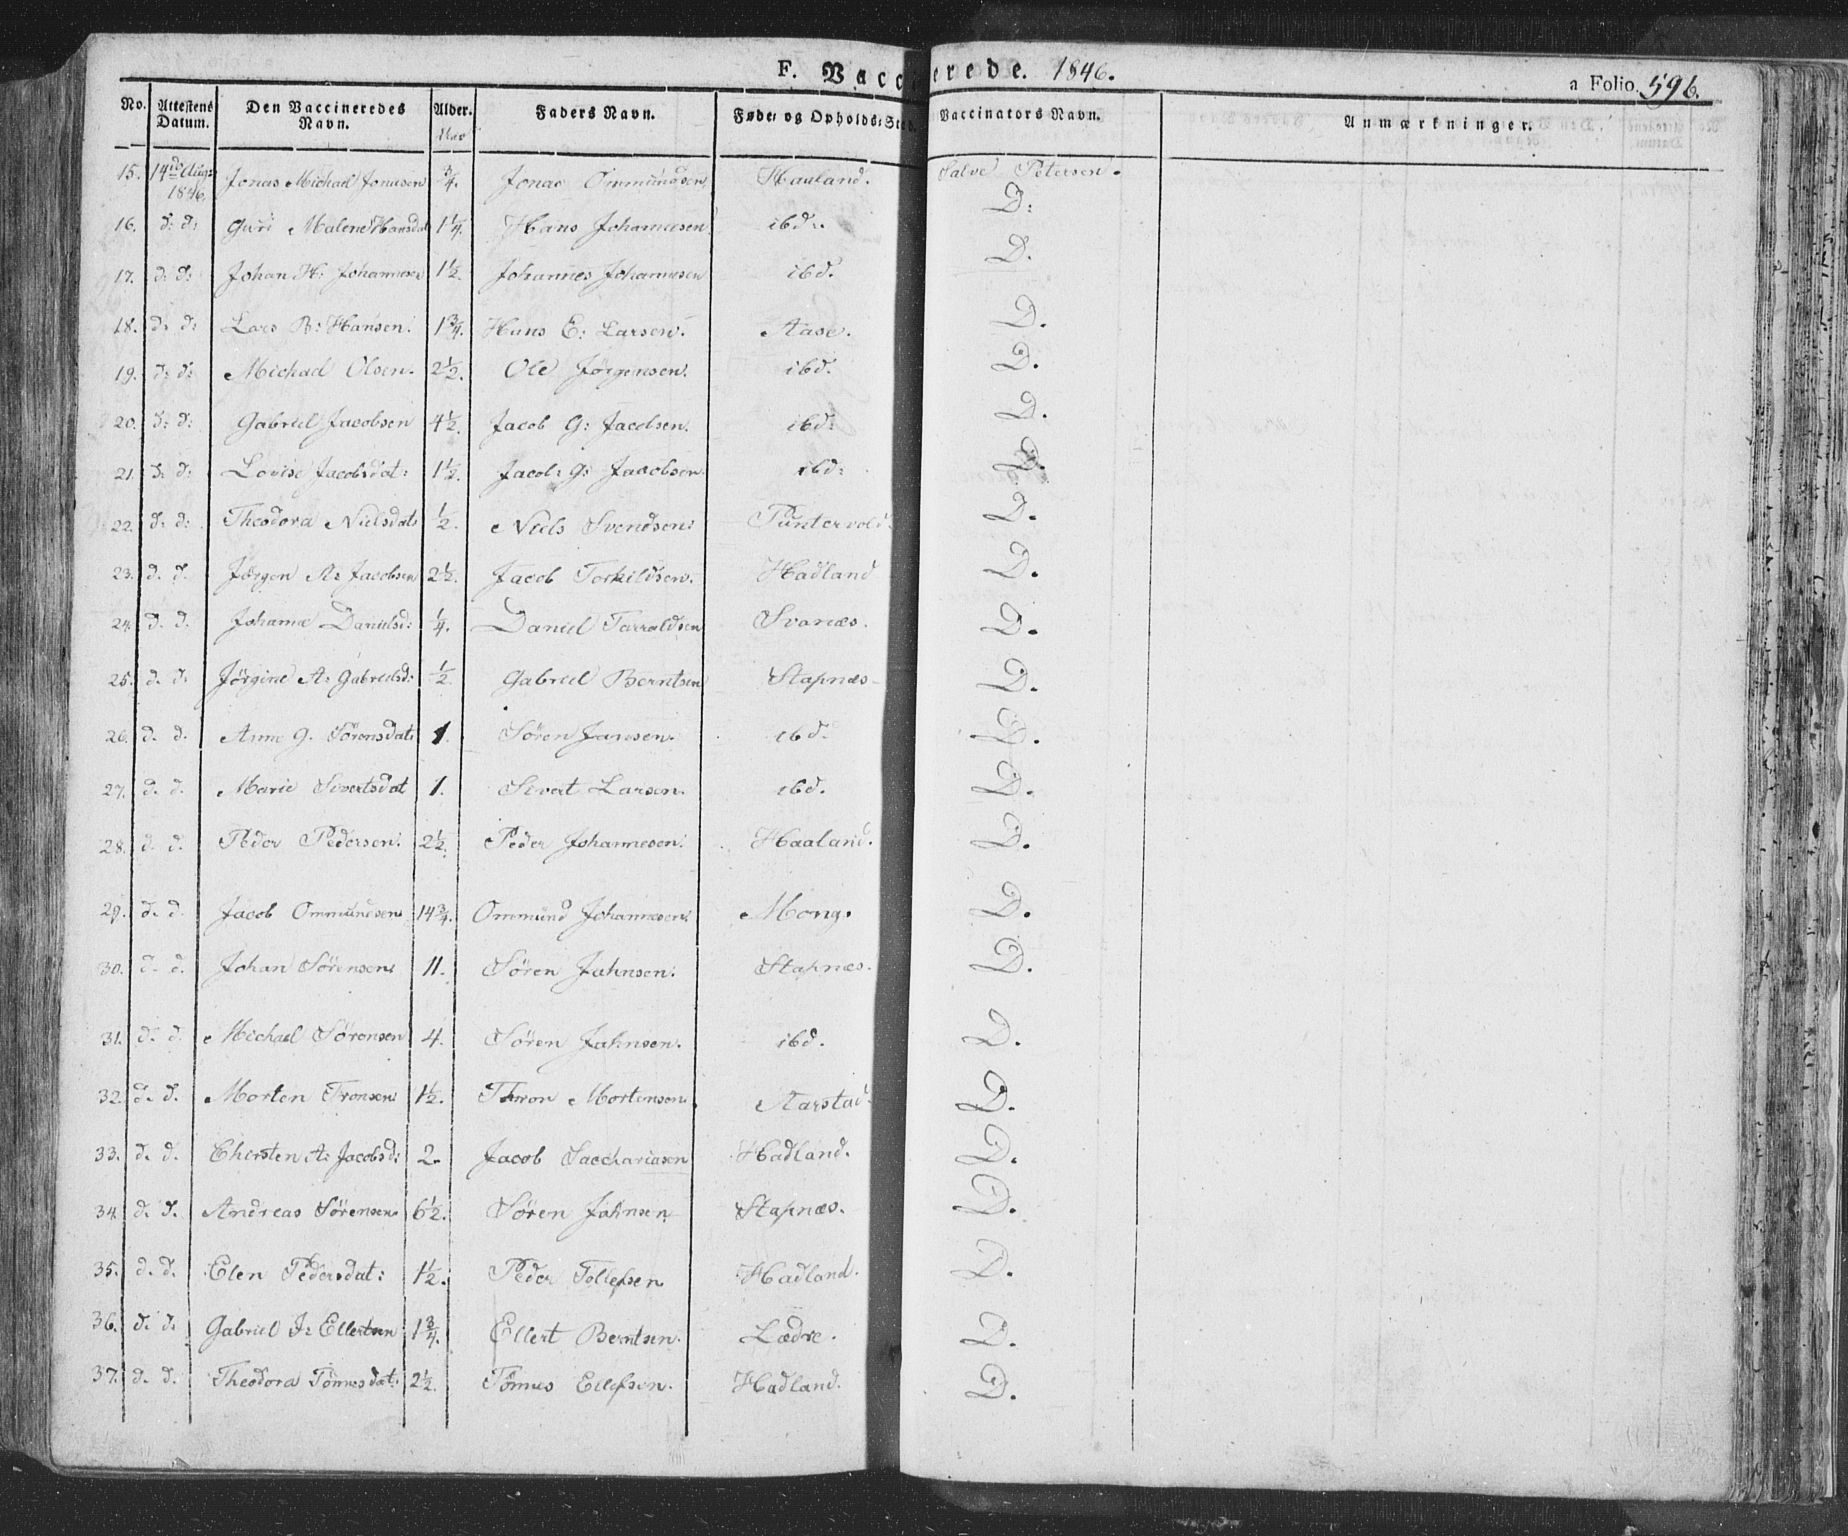 F. Vaccinerede. 1846. a Folio. 596.
No. Attestens Datum. Den Vaccineredes Navn. Alder. Faders Navn. Føde- og Opholds-Sted. Vaccinators Navn. Anmærkninger.
15. 14de Aug: 1846. Jonas Michael Jonasen 3/4. Jonas Ommundsen Haaland. Salve Petersen.
16. d: d: Guri Malene Hansdat 1 1/4. Hans Johannesen ibd. D:
17. d: d: Johan H: Johannesen 1 1/2. Johannes Johannesen ibd. D.
18. d: d: Lars B: Hansen. 1 3/4. Hans E: Larsen. Aase. D.
19. d: d: Michael Olsen. 2 1/2. Ole Jörgensen. ibd. D.
20. d: d: Gabriel Jacobsen 4 1/2. Jacob G: Jacobsen. ibd: D.
21. d: d: Lovise Jacobsdat: 1 1/2. Jacob G: Jacobsen ibd: D.
22. d: d: Theodora Nielsdat: 1/2. Niels Svendsen: Puntervold. D.
23. d. d. Jörgen A: Jacobsen 2 1/2. Jacob Torkildsen. Hadland D.
24. d. d. Johanne Danielsd: 1/4. Daniel Tarraldsen Svanæs. D.
25. d. d. Jörgine A: Gabrielsd: 1/2. Gabriel Berntsen Stapnæs D.
26. d. d. Anne G. Sörensdat: 1. Sören Jansen. ibd. D.
27. d. d. Marie Sivertsdat 1. Sivert Larsen. ibd. D.
28. d. d. Peder Pedersen. 2 1/2. Peder Johannesen. Haaland. D.
29. d. d. Jacob Ommundsen 14 3/4. Ommund Johannesen. Mong. D.
30. d. d. Johan Sörensen 11. Sören Jahnsen. Stapnæs. D.
31. d. d. Michael Sörensen 4. Sören Jahnsen. ibd. D.
32. d. d. Morten Tronsen 1 1/2. Thron Mortensen. Aarstad. D.
33. d. d. Chirsten A: Jacobsd: 2. Jacob Sacchariasen Hadland. D.
34. d. d. Andreas Sörensen 6 1/2. Sören Jahnsen Stapnæs. D.
35. d. d. Elen Pedersdat: 1 1/2. Peder Tollefsen Hadland. D.
36. d. d: Gabriel J: Ellertsen 1 3/4. Ellert Berntsen. Lædre. D.
37. d. d. Theodora Tönnesdat: 2 1/2. Tönnes Ellefsen. Hadland. D.